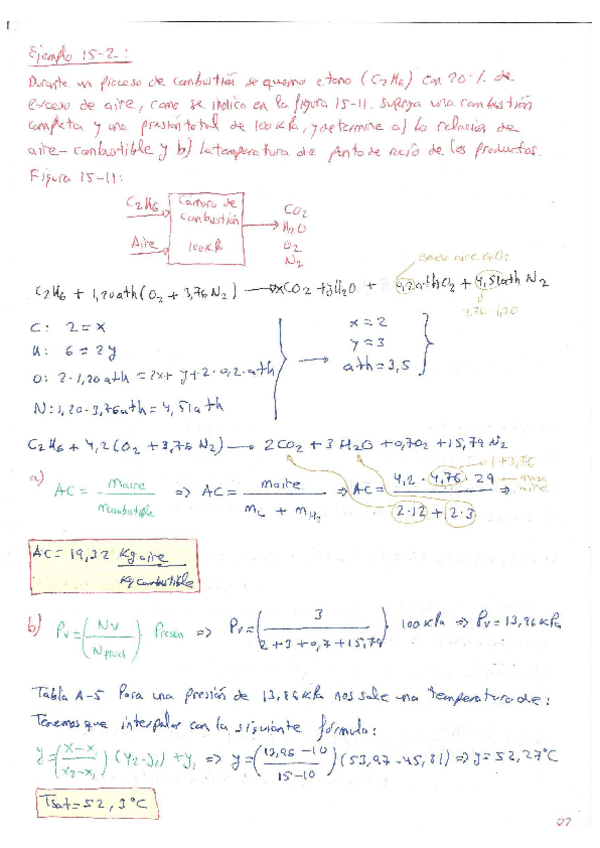 Ejemplo 15-2:
Durante un proceso de combustión se quema etano (C2H6) con 20% de
exceso de aire, como se indica en la figura 15-11. Suponga una combustión
completa y una presión total de 100 kPa, y determine a) La relación de
aire-combustible y b) La temperatura de punto de rocío de los productos.
Figura 15-11:
C2H6
Aire
Cámara de
combustión
100 kPa
CO2
H2O
O2
N2
C2H6 + 1,20ath(O2 + 3,76 N2) → xCO2 + 3H2O + 0,2athO2 + 4,51ath N2
3,76 · 1,20
C: 2 = x
H: 6 = 2y
O: 2·1,20ath = 2x + y + 2·0,2·ath
N: 1,20·3,76ath = 4,51ath
→
x = 2
y = 3
ath = 3,5
C2H6 + 4,2(O2 + 3,76 N2) → 2CO2 + 3H2O + 0,7O2 + 15,79 N2
1+3,76
a) AC = maire / mcombustible => AC = maire / mC + mH2 => AC = 4,2 · 4,76 · 29 / 2·12 + 2·3 =>
masa aire
AC = 19,32 Kg aire / Kg combustible
b) Pv = (Nv / Nprod) · Pprod => Pv = (3 / 2+3+0,7+15,79) · 100 kPa => Pv = 13,96 kPa
Tabla A-5 Para una presión de 13,96 kPa nos sale una temperatura de:
Tenemos que interpolar con la siguiente fórmula:
y = (x-x1 / x2-x1)(y2-y1) + y1 => y = (13,96-10 / 15-10)(53,97-45,81) => y = 52,27°C
Tsat = 52,3°C